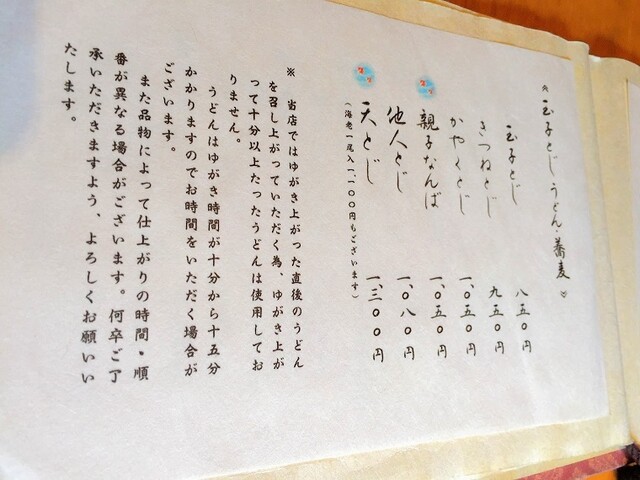 ≪玉子とじ うどん・蕎麦≫
玉子とじ 八五〇円
きつねとじ 九五〇円
かやくとじ 一、〇五〇円
親子なんば 一、〇五〇円
他人とじ 一、〇八〇円
天とじ 一、三〇〇円
(海老一尾入一、一〇〇円もございます)
※ 当店ではゆがき上がった直後のうどん
を召し上がっていただく為、ゆがき上が
って十分以上たったうどんは使用してお
りません。
うどんはゆがき時間が十分から十五分
かかりますのでお時間をいただく場合が
ございます。
また品物によって仕上がりの時間・順
番が異なる場合がございます。何卒ご了
承いただきますよう、よろしくお願いい
たします。